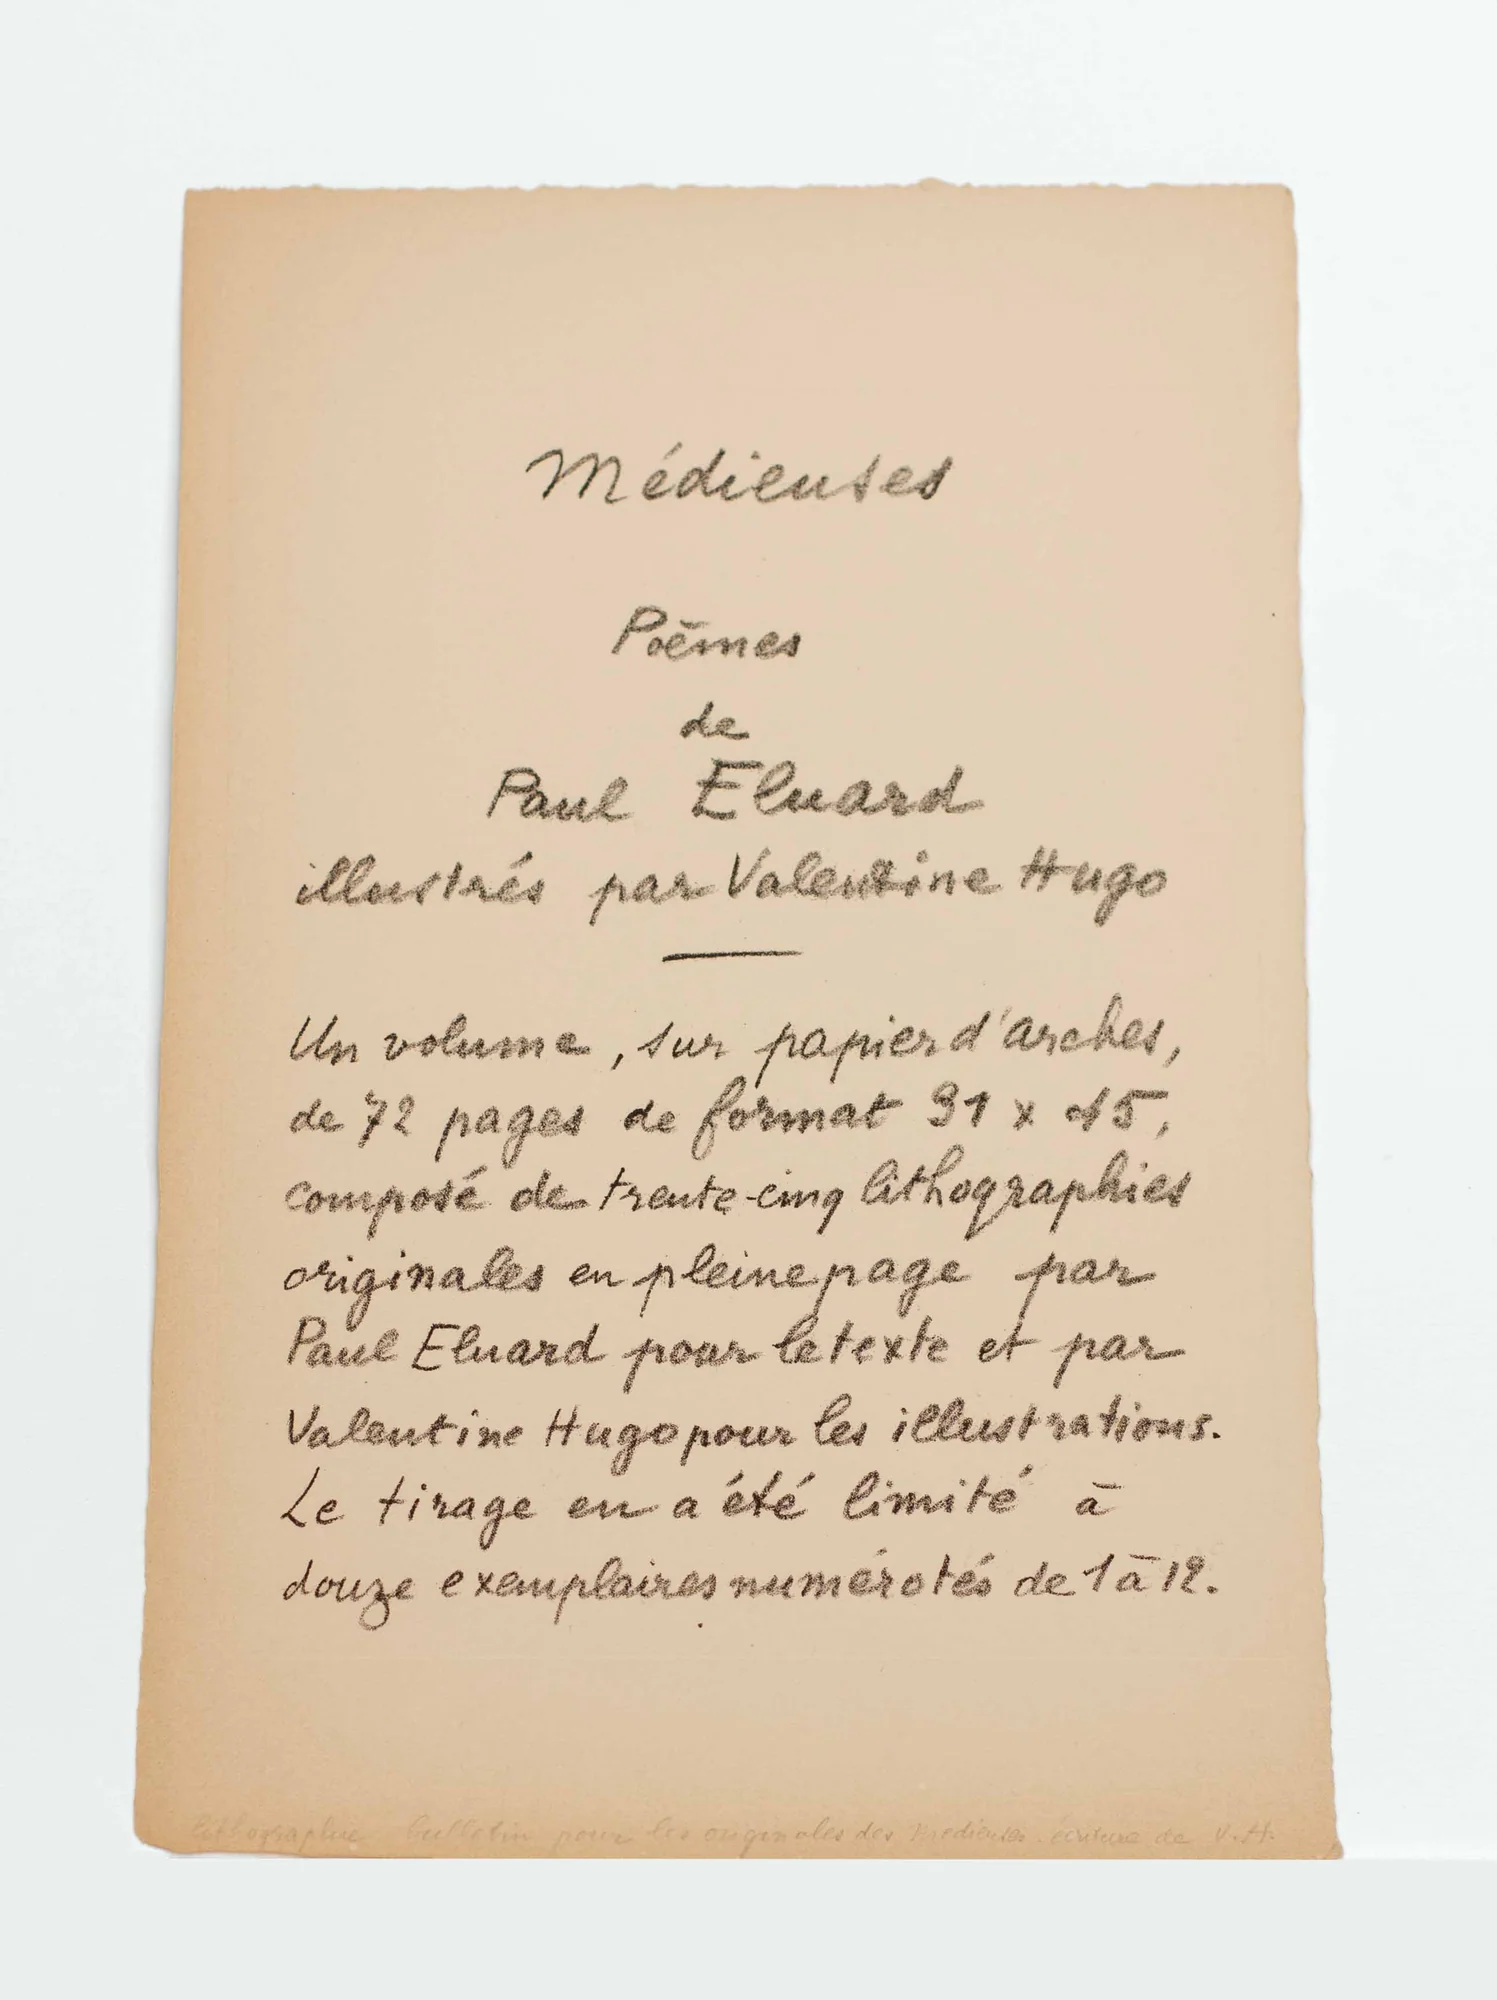 Médieuses
Poèmes
de
Paul Eluard
illustrés par Valentine Hugo
Un volume, sur papier d'arches,
de 72 pages de format 31 x 45,
composé de trente-cinq lithographies
originales en pleine page par
Paul Eluard pour le texte et par
Valentine Hugo pour les illustrations.
Le tirage en a été limité à
douze exemplaires numérotés de 1 à 12.
lithographie bulletin pour les originales des Medieuses écriture de V.H.